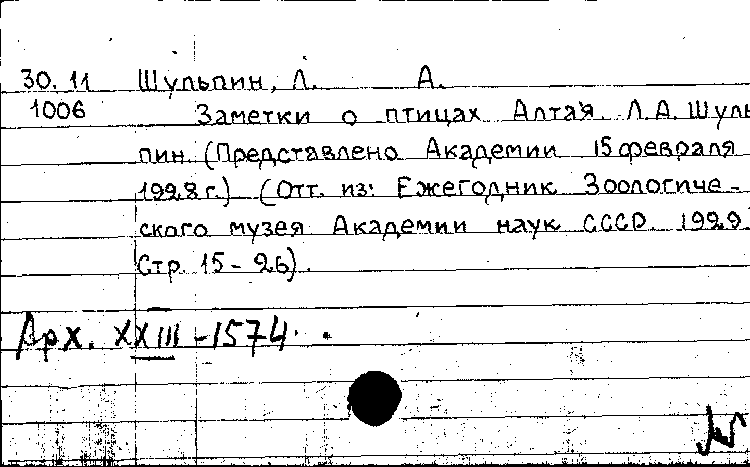 30.11 Шульпин, Л. А.
1006 Заметки о птицах Алтая. Л.А. Шуль
пин. (Представлено Академии 15 февраля
1928 г.) (Отт. из: Ежегодник Зоологиче-
ского музея Академии наук СССР. 1929.
Стр. 15-26).
Арх. XXIII-1574.